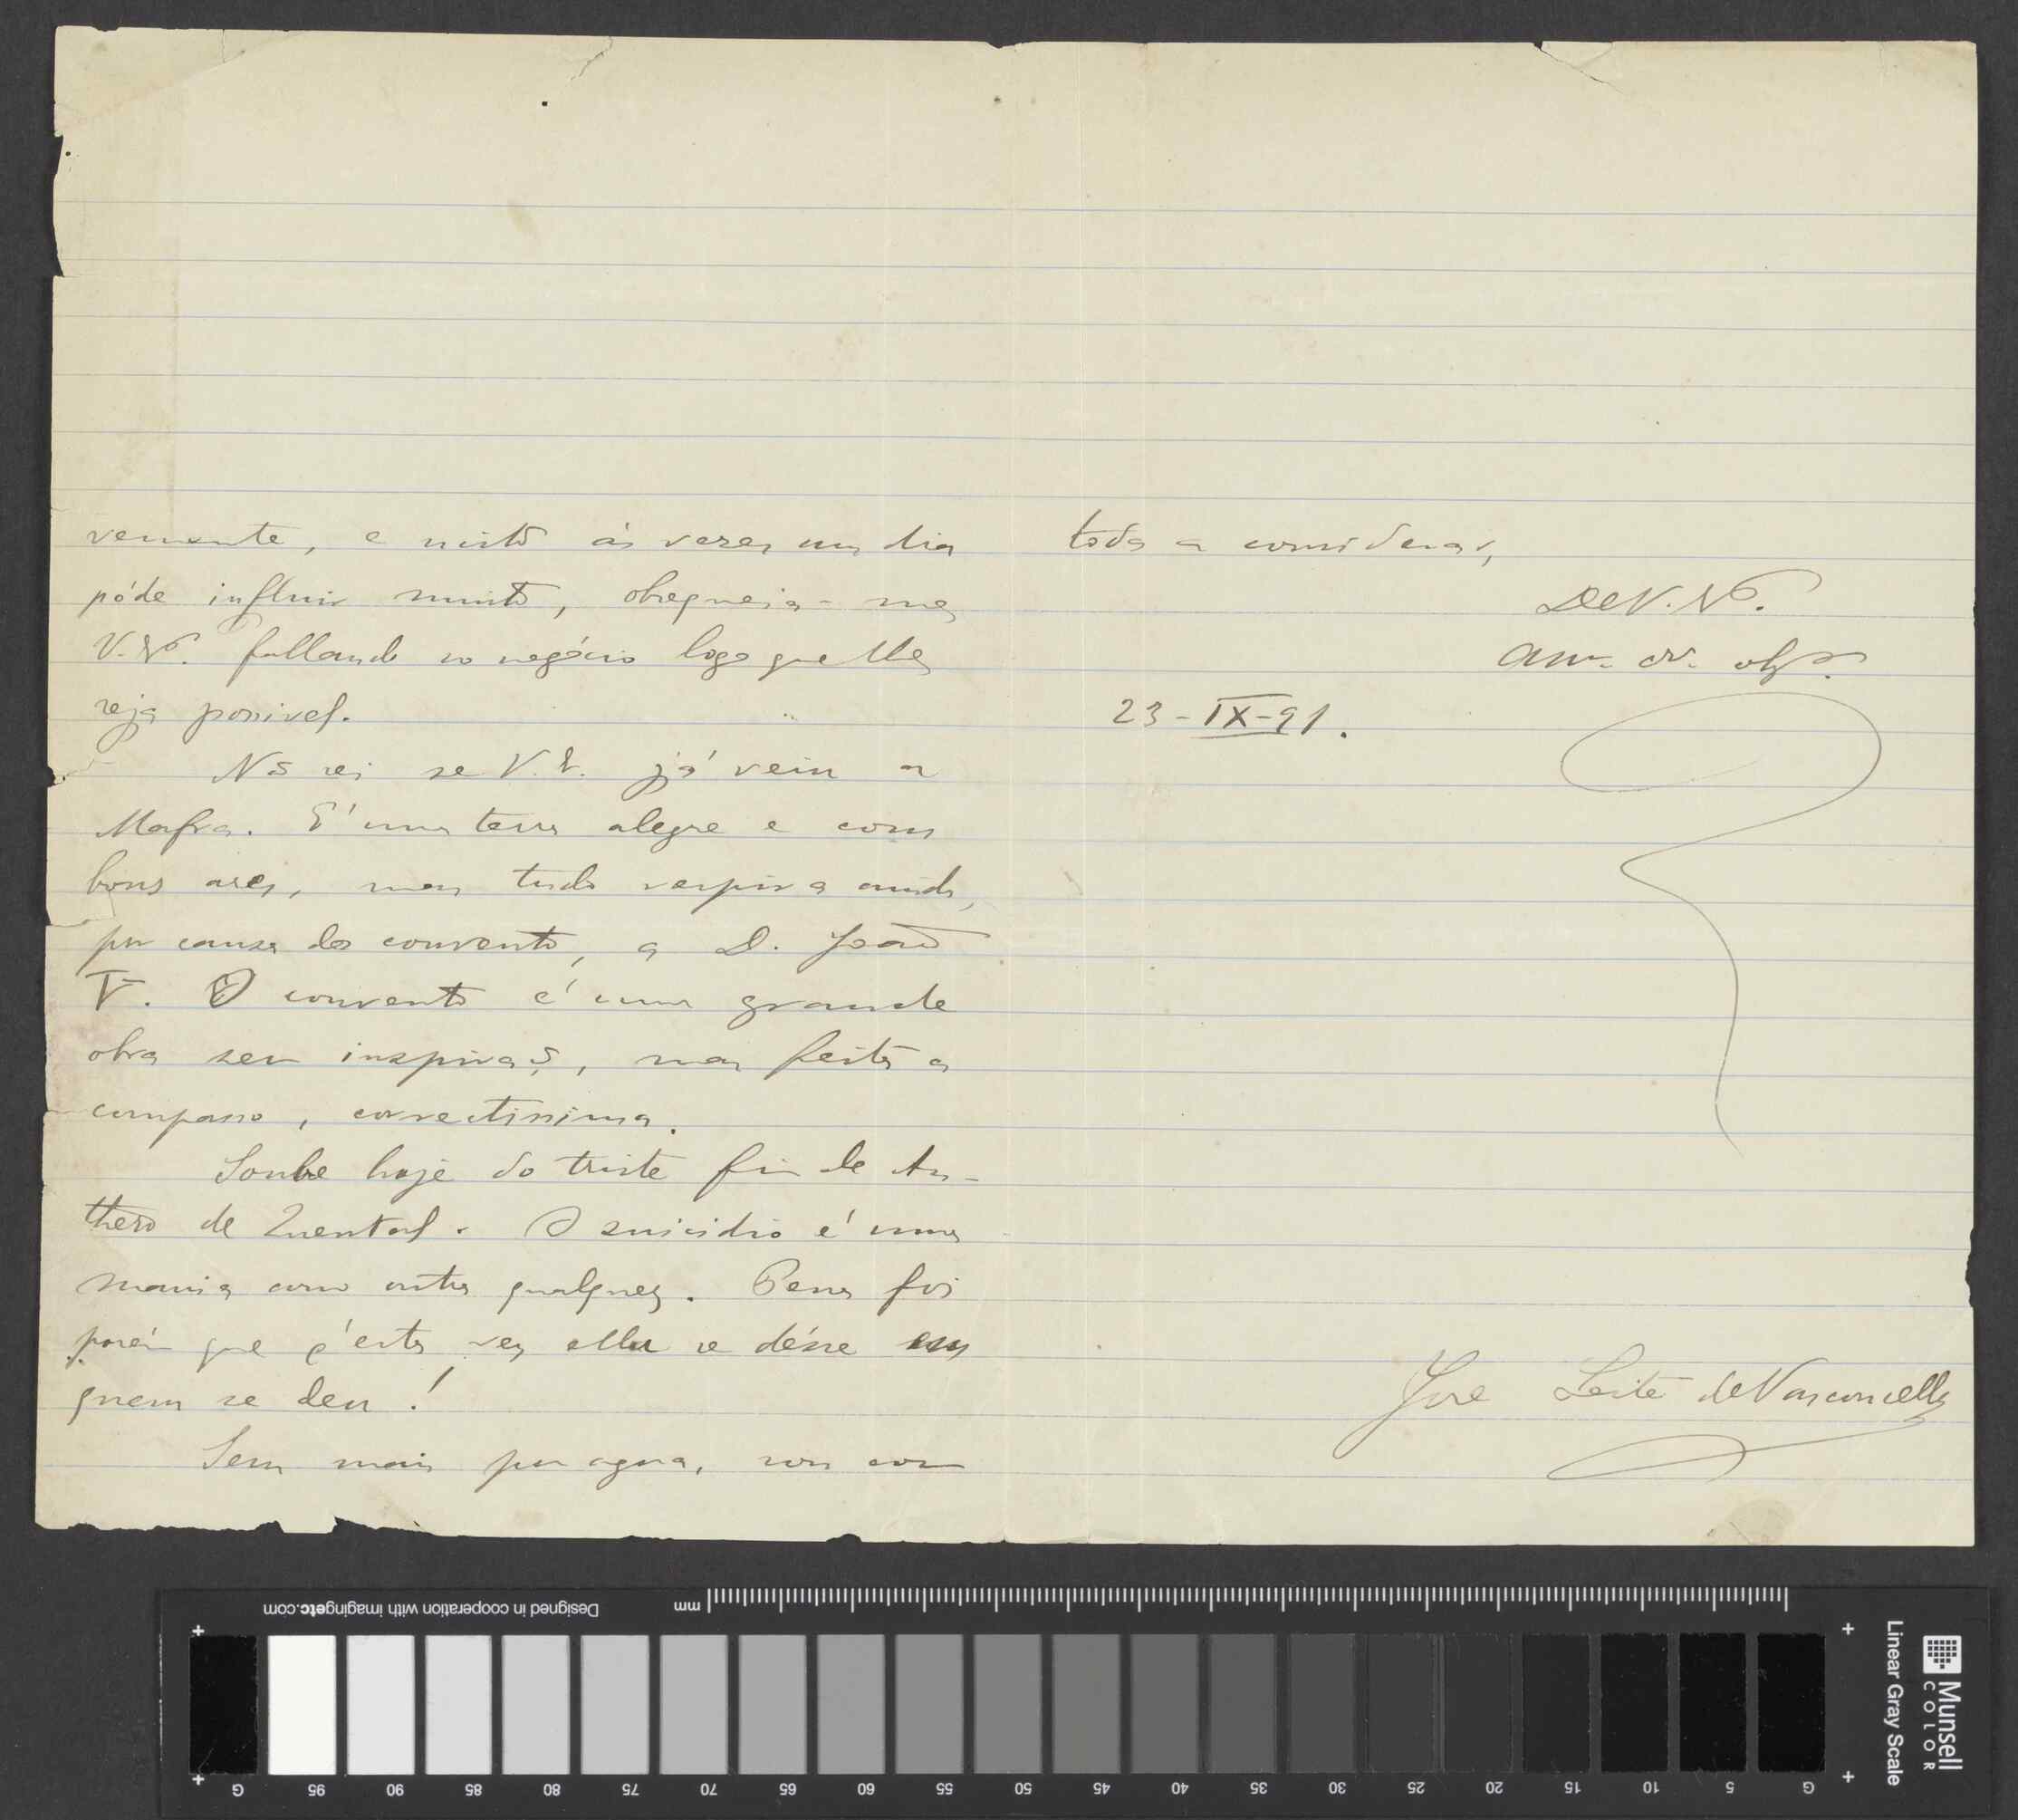 vemente, e nisto ás vezes um dia
póde influir muito, obsequeia-me
V. Ex.ª fallando no negócio logo que lhe
seja possivel.
Nõ sei se V. E. já veiu a
Mafra. É uma terra alegre e com
bons ares, mas tudo respira ainda,
por causa do convento, a D. João
V. O convento é uma grande
obra sem inspiraç̃, mas feita a
compasso, correctissima.
Soube hoje do triste fim de An-
thero de Quental. O suicidio é uma
mania como outra qualquer. Pena foi
porém que d'esta vez ella se désse em
quem se deu!
Sem mais por agora, sou com
toda a consideraç,
De V. Ex.ª
am.º cr.º obg.º
23-IX-91.
José Leite de Vasconcellos
Designed in cooperation with imagingetc.com
mm
Munsell
COLOR
Linear Gray Scale
G 95 90 85 80 75 70 65 60 55 50 45 40 35 30 25 20 15 10 5 G